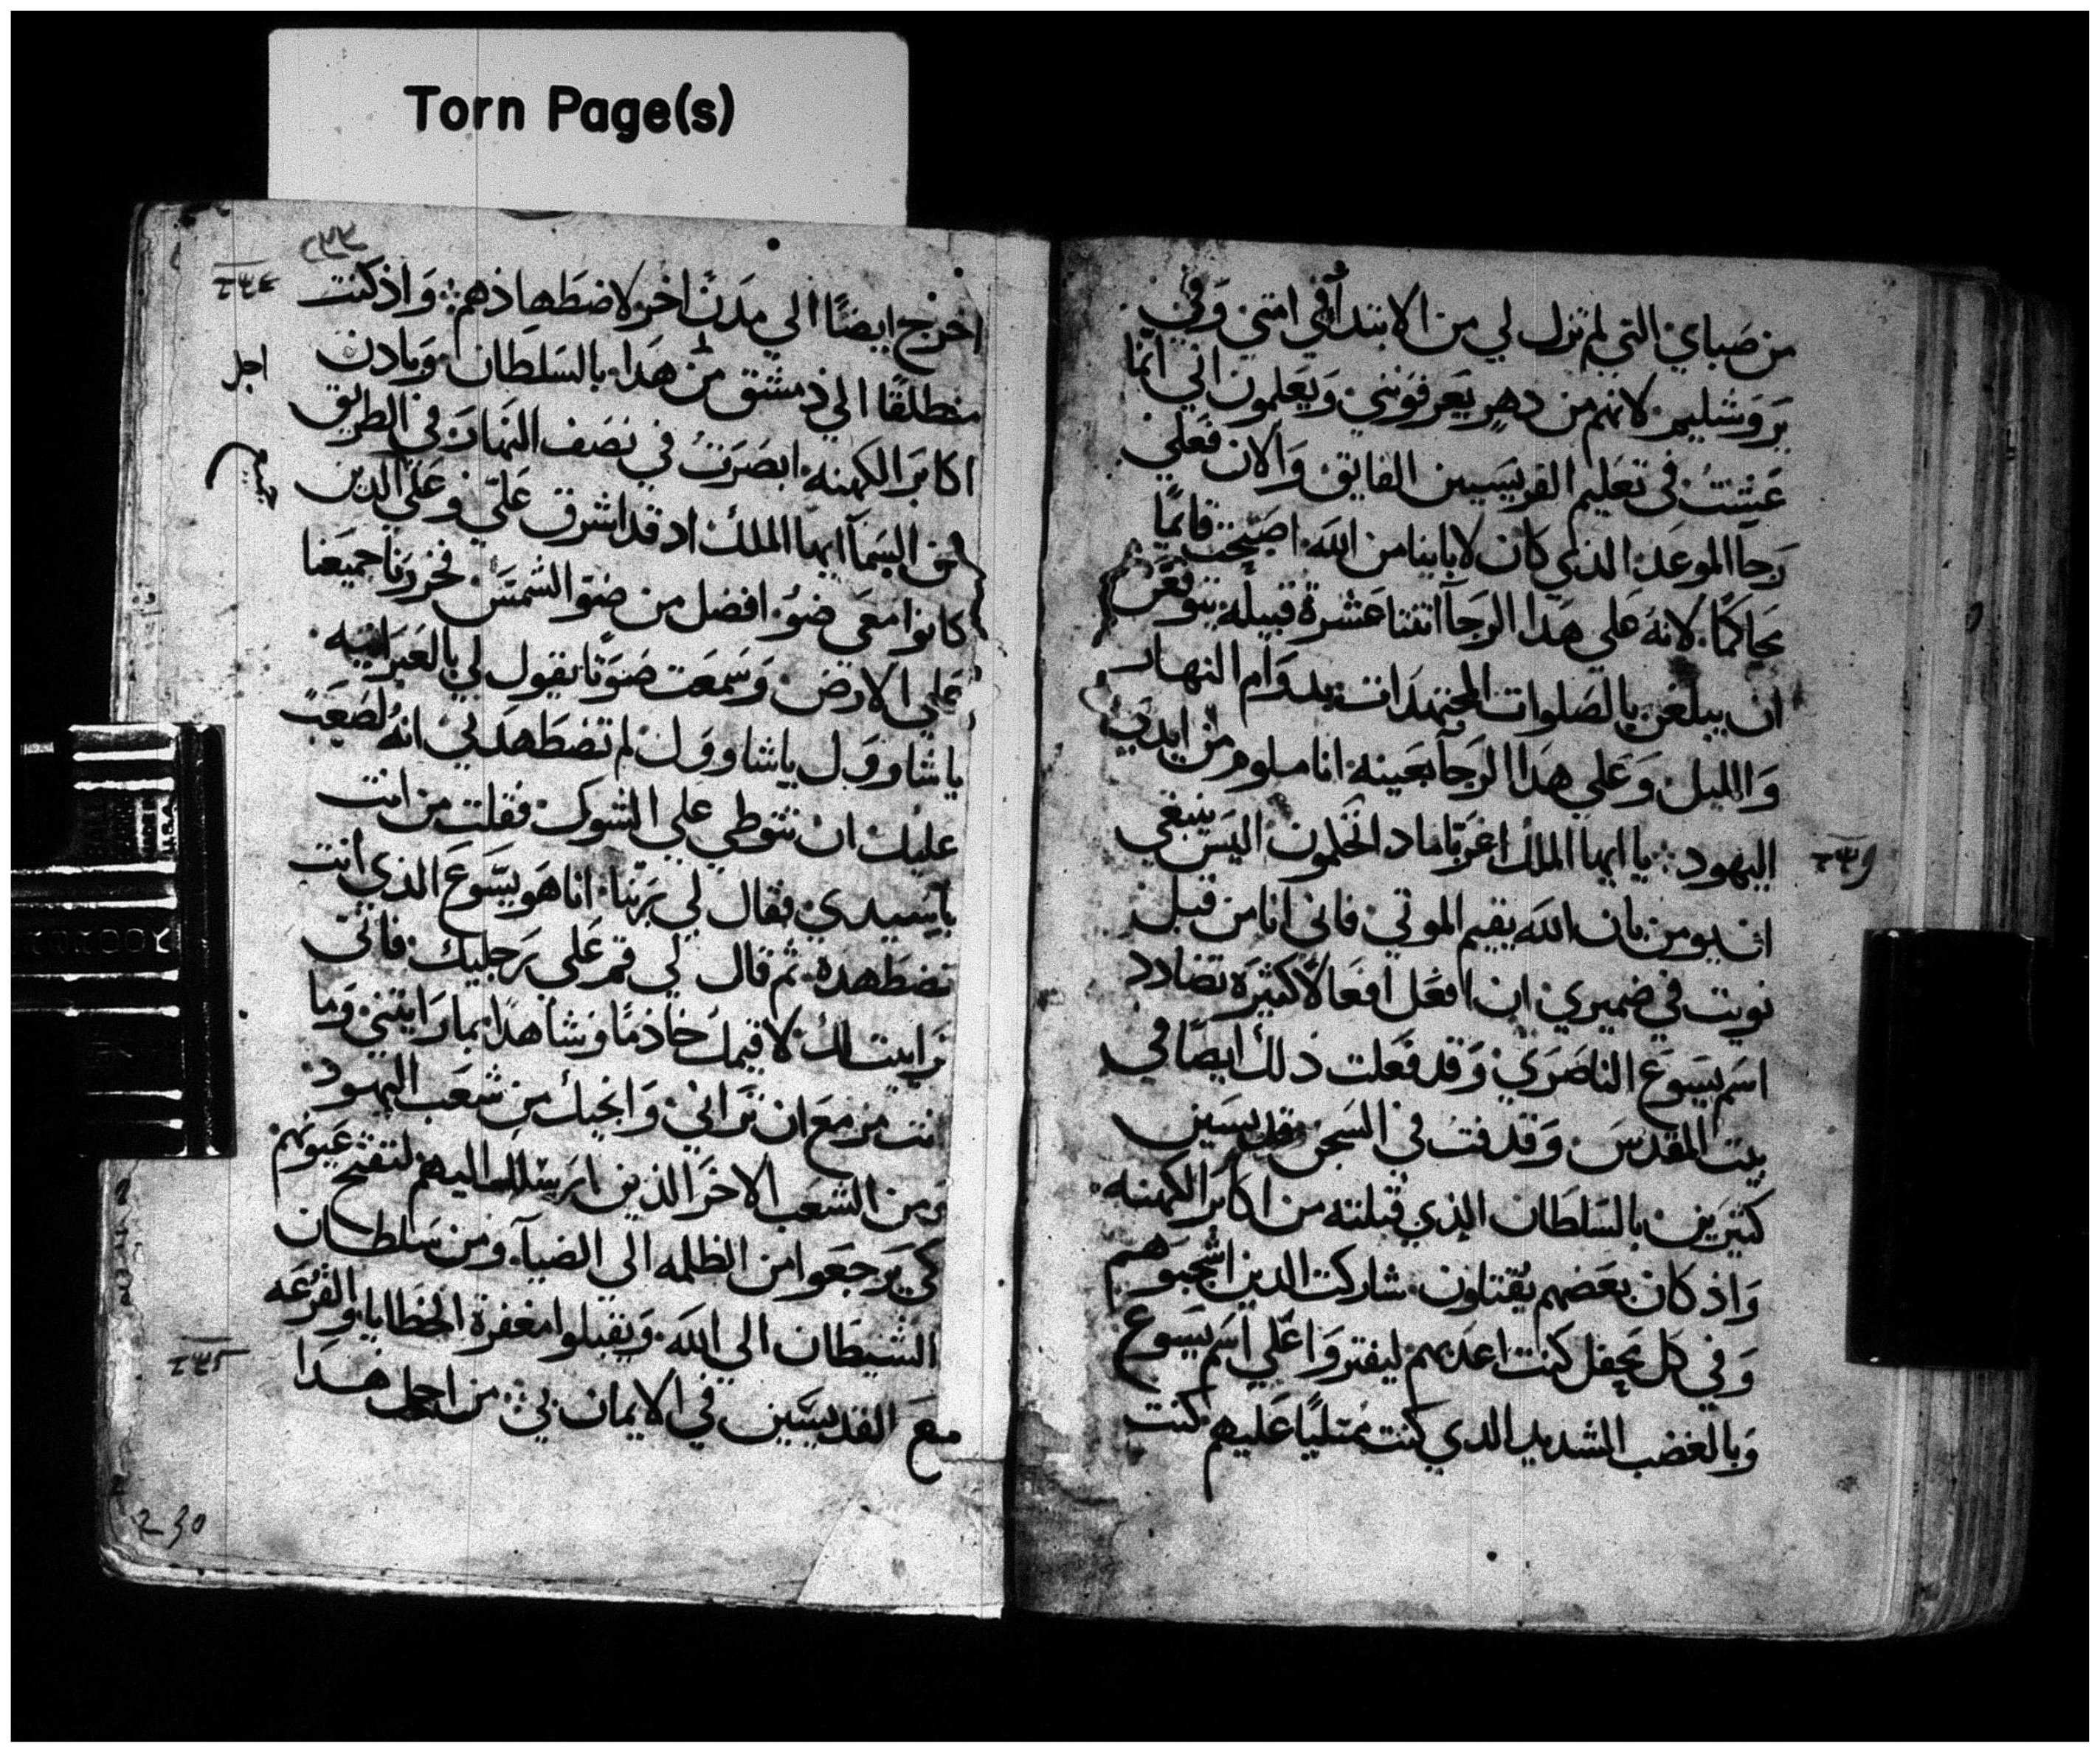 Torn Page(s)
من صباي التي لم تزل لي من الابتدأ في امتي وفي
يروشليم لانهم من دهر يعرفونني ويعلمون اني انما
عشت في تعليم الفريسيين الفايق والان فعلي
رجآ الموعد الذي كان لاباينا من الله اصبحت قايمًا
محاكمًا لانه علي هذا الرجآ اثنتا عشرة قبيله يتوقعن
ان يبلغن بالصلوات المجتهدات بدوام النهار
والليل وعلي هذا الرجآ بعينه انا ملوم من ايدي
اليهود يا ايها الملك اغريا ماد اتحكمون اليس ينبغي
ان يومن بان الله يقيم الموتي فاني انا من قبل
نويت في ضميري ان افعل افعالًا كثيره تضادد
اسم يسوع الناصري وقد فعلت ذلك ايضًا في
بيت المقدس وقدفت في السجن قديسين
كثيرين بالسلطان الذي قبلته من اكابر الكهنه
واذ كان بعضهم يقتلون شاركت الذين اشجبوهم
وفي كل محفل كنت اعدبهم ليفتروا علي اسم يسوع
وبالغضب الشديد الذي كنت ممتليًا عليهم كنت
اخرج ايضًا الي مدن اخر لاضطهادهم واذ كنت
منطلقًا الي دمشق من هذا بالسلطان وبادن
اجل
اكابر الكهنه ابصرت في نصف النهار في الطريق
من السمآ ايها الملك اد قد اشرق علّي وعلى الذين
كانوا معي ضؤ افضل من ضو الشمس فخررنا جميعنا
علي الارض وسمعت صوتًا يقول لي بالعبرانيه
ياشاوول ياشاوول لم تضطهدني انه لصعب
عليك ان تتوطي علي الشوك فقلت من انت
ياسيدي فقال لي ربنا انا هو يسوع الذي انت
تضطهده ثم قال لي قم علي رجليك فاني
ترايت لك لاقيمك خادمًا وشاهدًا بما رايتني وما
انت مزمع ان تراني وانجيك من شعب اليهود
ومن الشعب الاخر الذين ارسلك اليهم لتفتح عيونهم
كي يرجعوا من الظلمه الي الضيآ ومن سلطان
الشيطان الي الله ويقبلوا مغفرة الخطايا والقرعه
مع القديسين في الايمان بي من اجل هذا
230